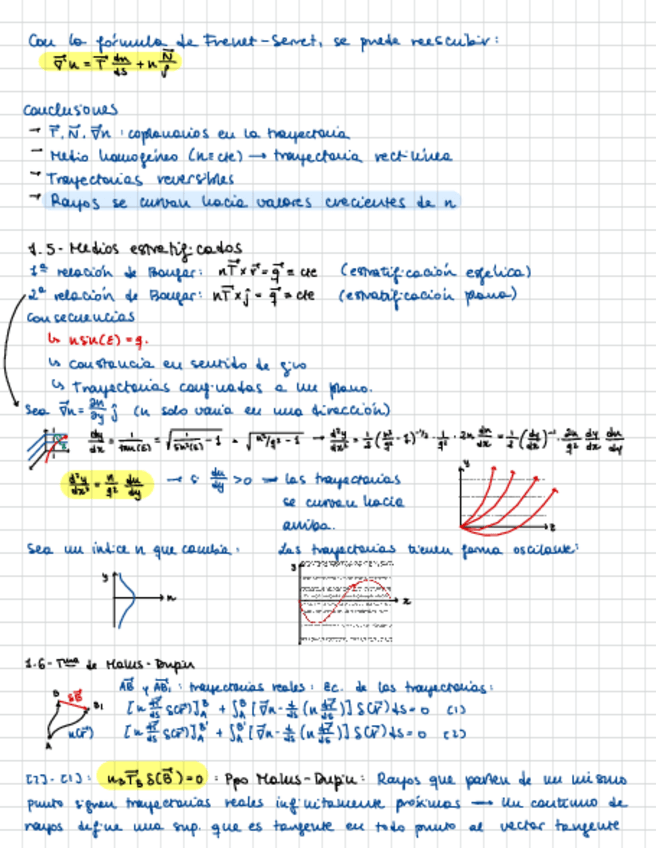 Con la fórmula de Frenet-Serret, se puede reescribir:
∇⃗n = T⃗ dn/ds + n N⃗/ρ
Conclusiones
→ T⃗, N⃗, ∇⃗n : coplanarios en la trayectoria
→ Medio homogéneo (n=cte) → trayectoria rectilínea
→ Trayectorias reversibles
→ Rayos se curvan hacia valores crecientes de n
1.5- Medios estratificados
1ª relación de Bouger: nT⃗ x r⃗ = q⃗ = cte (estratificación esférica)
2ª relación de Bouger: nT⃗ x j⃗ = q⃗ = cte (estratificación plana)
Consecuencias
↳ nsin(ε) = q.
↳ constancia en sentido de giro
↳ Trayectorias confinadas a un plano.
Sea ∇⃗n = ∂n/∂y j⃗ (n solo varía en una dirección)
dy/dx = 1/tan(ε) = √(1/sin²(ε) - 1) = √(n²/q² - 1) → d²y/dx² = 1/2 (n²/q² - 1)^(-1/2) · 1/q² · 2n dn/dx = 1/2 (dy/dx)^(-1) · 2n/q² dy/dx dn/dy
d²y/dx² = n/q² dn/dy → si dn/dy > 0 → las trayectorias
se curvan hacia
arriba.
y
x
Sea un índice n que cambia: Las trayectorias tienen forma oscilante:
y n
y x
1.6- Tma de Malus-Dupin
AB y AB₁ : trayectorias reales : Ec. de las trayectorias:
[n dr⃗/ds δ(r⃗)]_A^B + ∫_A^B [∇⃗n - d/ds (n dr⃗/ds)] δ(r⃗) ds = 0 (1)
[n dr⃗/ds δ(r⃗)]_A^B' + ∫_A^B' [∇⃗n - d/ds (n dr⃗/ds)] δ(r⃗) ds = 0 (2)
B δB⃗ B₁ n(r⃗) A
[2]-[1]: n_B T⃗_B δ(B⃗) = 0 : Ppo Malus-Dupin: Rayos que parten de un mismo
punto siguen trayectorias reales infinitamente próximas → Un continuo de
rayos define una sup. que es tangente en todo punto al vector tangente